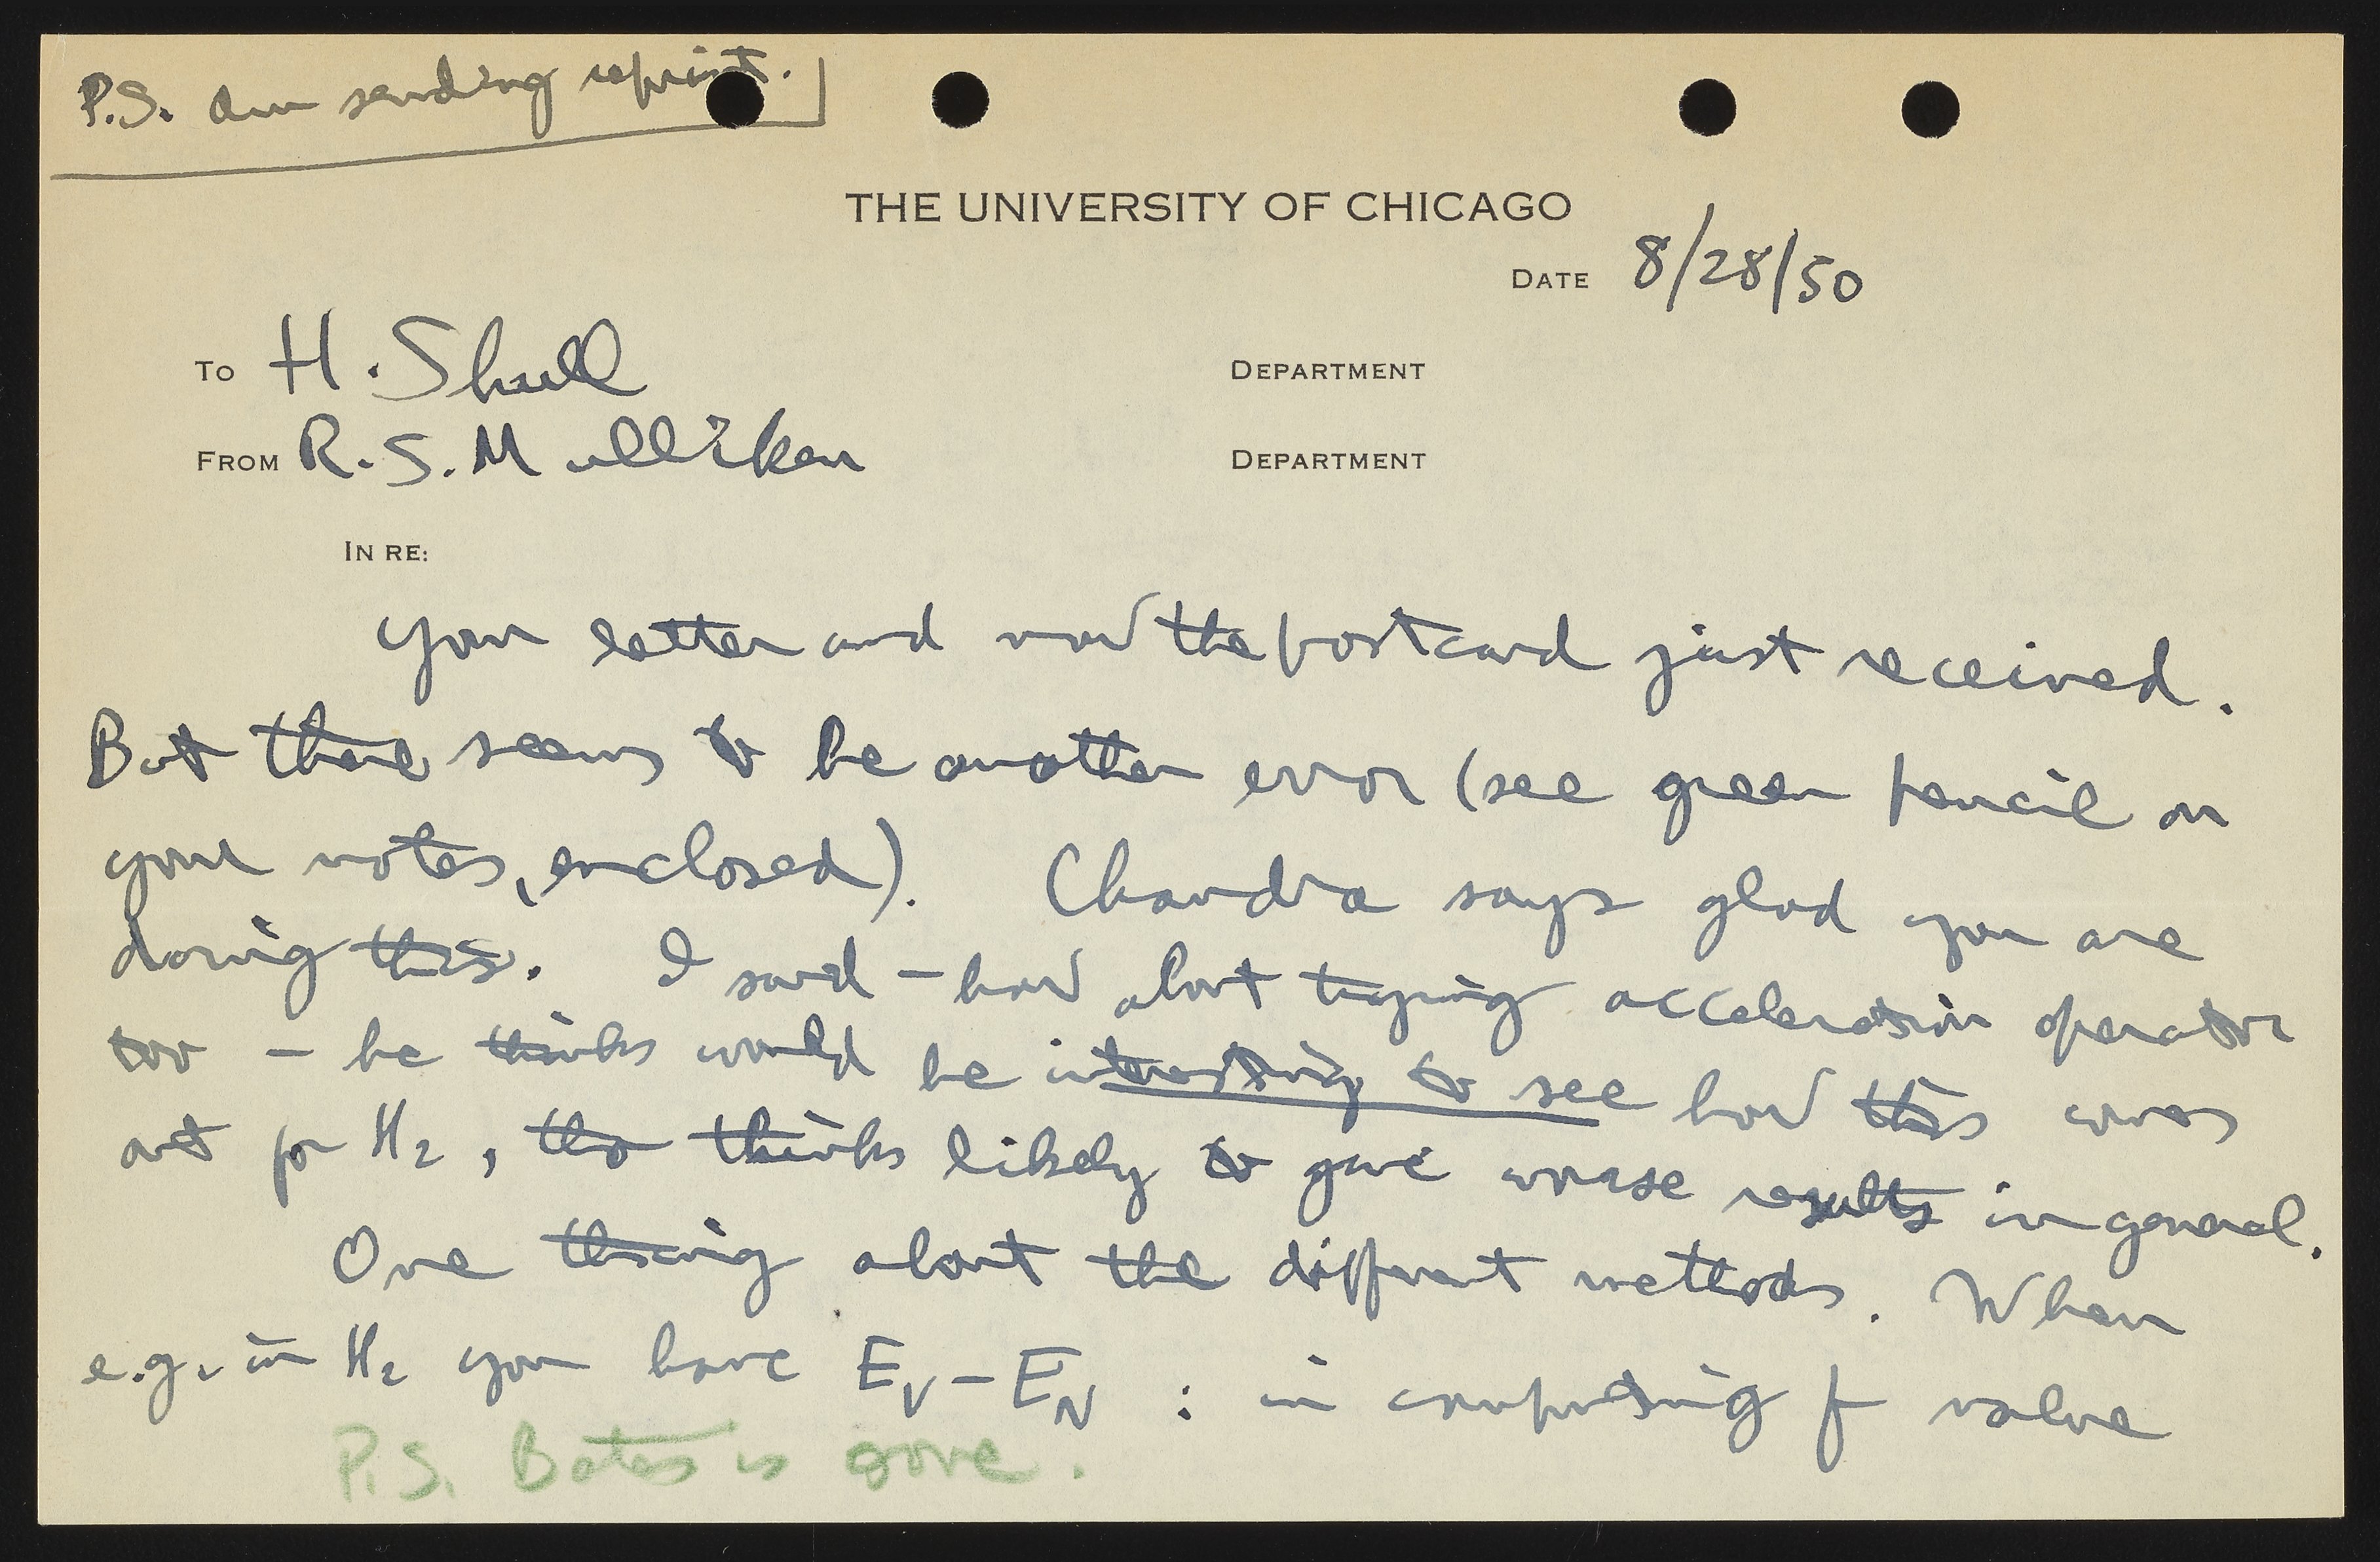 P.S. Am sending reprint.
THE UNIVERSITY OF CHICAGO
DATE 8/28/50
TO H. Shull DEPARTMENT
FROM R. S. Mulliken DEPARTMENT
IN RE:
Your letter and now the postcard just received.
But there seems to be another error (see green pencil on
your notes, enclosed). Chandra says glad you are
doing this. I said – how about trying acceleration operator
too – he thinks would be interesting to see how this comes
out for H2, tho thinks likely to give worse results in general.
One thing about the different methods. When
e.g. in H2 you have EV – EN : in computing f value
P.S. Bates is gone.